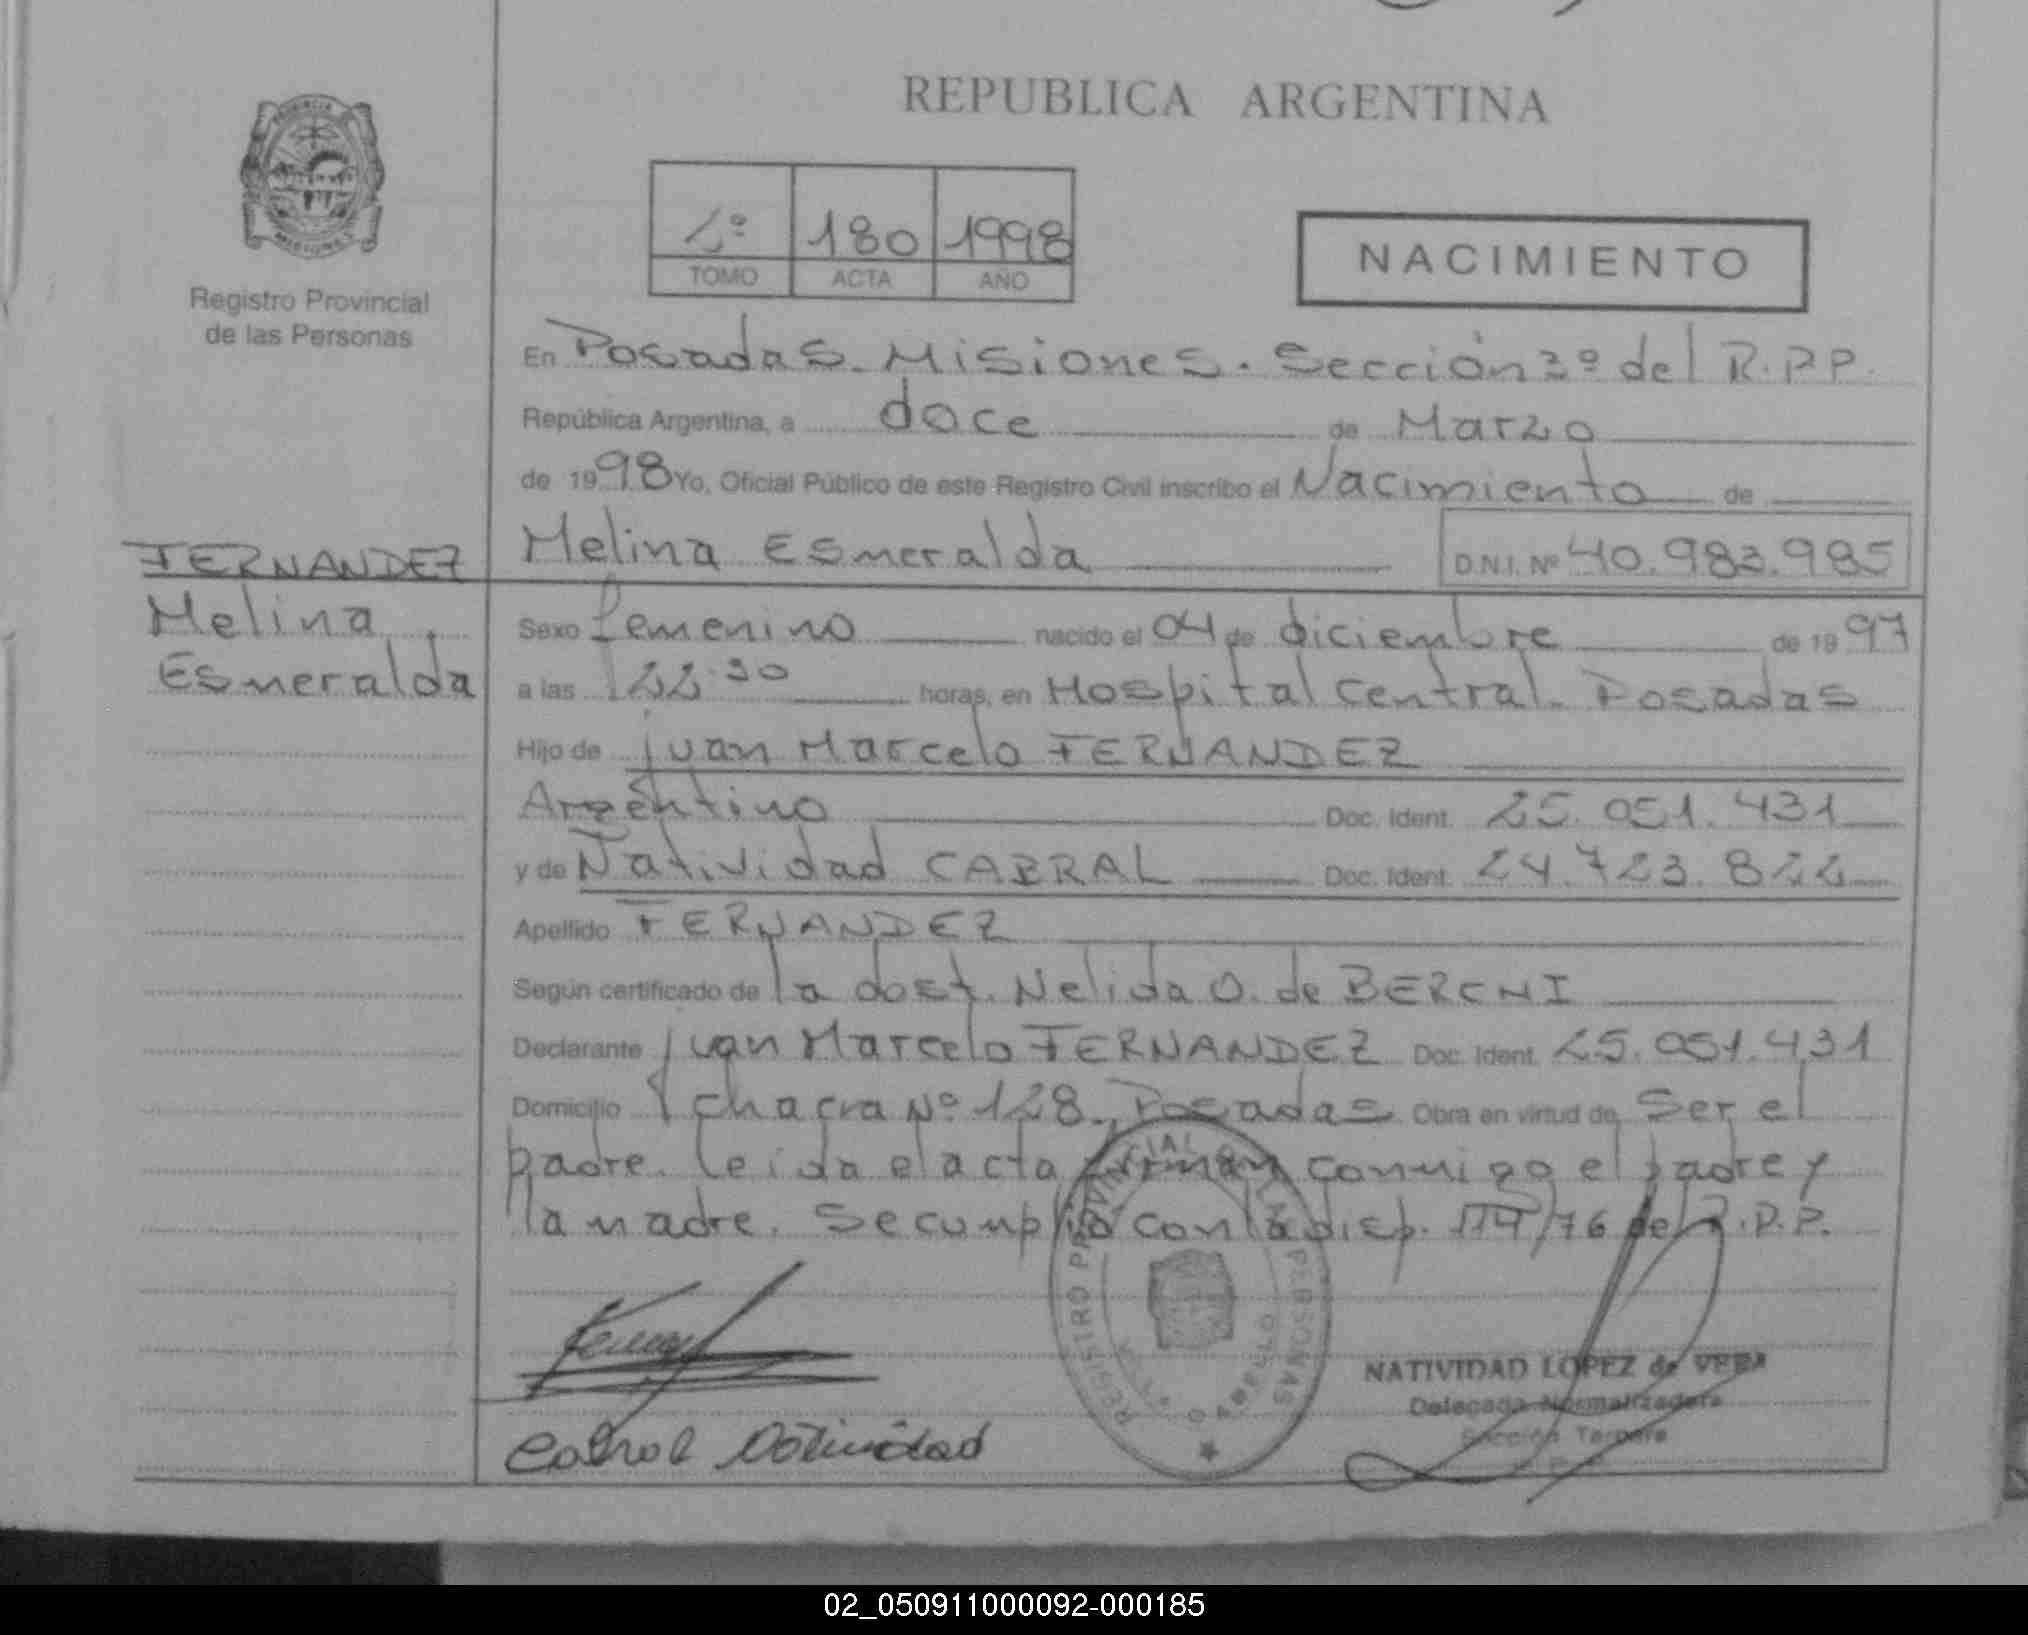 REPUBLICA ARGENTINA
PROVINCIA
MISIONES
Registro Provincial
de las Personas
2º 180 1998
TOMO ACTA AÑO
NACIMIENTO
En Posadas. Misiones. Sección 3º del R.P.P.
República Argentina, a doce de Marzo
de 1998 Yo, Oficial Público de este Registro Civil inscribo el Nacimiento de
Melina Esmeralda D.N.I. Nº 40.983.985
FERNANDEZ
Melina
Esmeralda
Sexo femenino nacido el 04 de diciembre de 1997
a las 22.30 horas, en Hospital Central. Posadas
Hijo de Juan Marcelo FERNANDEZ
Argentino Doc. Ident. 25.051.431
y de Natividad CABRAL Doc. Ident. 24.723.822
Apellido FERNANDEZ
Según certificado de la obst. Nelida O. de
Declarante Juan Marcelo FERNANDEZ Doc. Ident. 25.051.431
Domicilio chacra Nº 128., Posadas Obra en virtud de Ser el
padre. leida el acta firman conmigo el padre y
la madre. Se cumplió con la disp. /76 del R.P.P.
REGISTRO PROVINCIAL DE LAS PERSONAS
Cabral Natividad
NATIVIDAD LOPEZ de VERA
Delegada Normalizadora
Sección Tercera
02_050911000092-000185